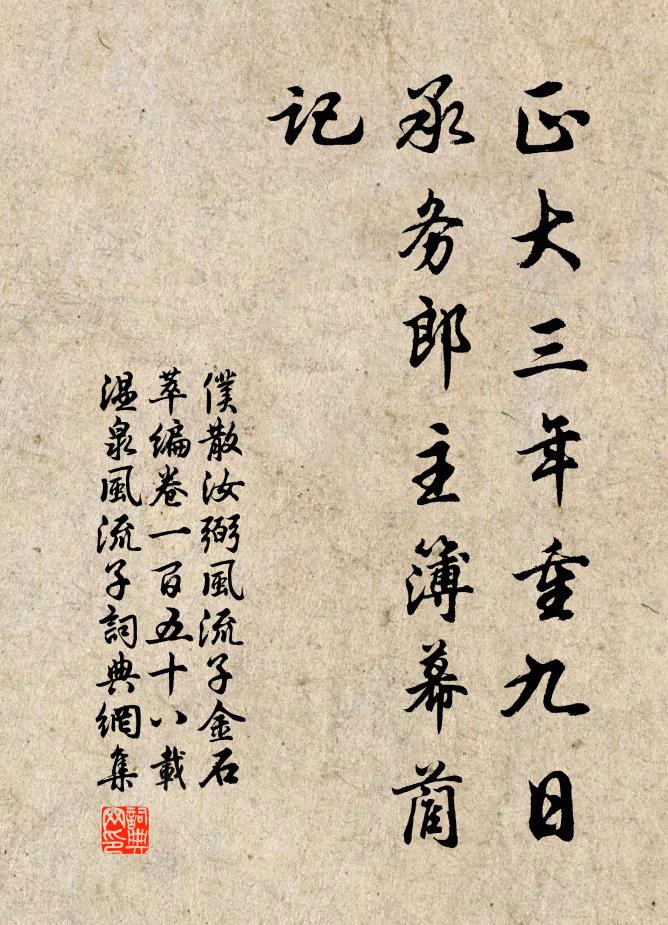 正大三年重九日
承务郎主簿幕蔺
记
僕散汝弼風流子金石
萃编卷一百五十八載
温泉風流子詞典網集
詞典網印